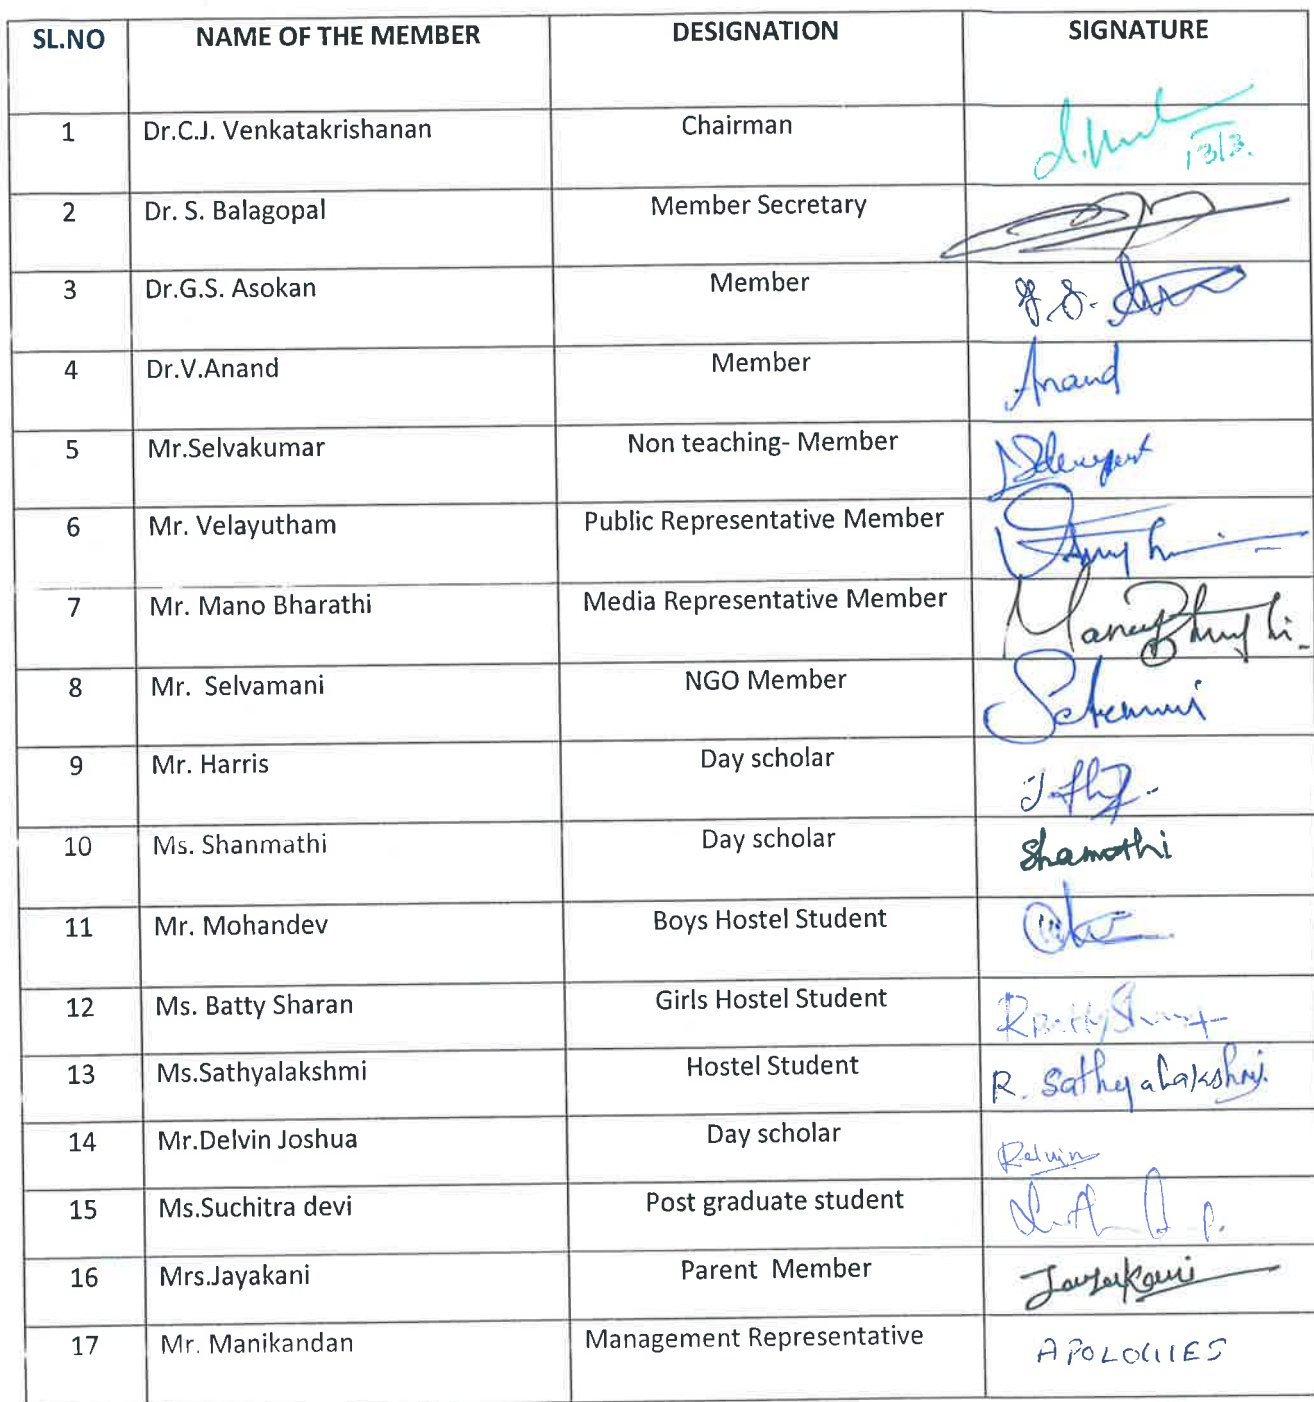 SL.NO NAME OF THE MEMBER DESIGNATION SIGNATURE
1 Dr.C.J. Venkatakrishanan Chairman 13/3.
2 Dr. S. Balagopal Member Secretary
3 Dr.G.S. Asokan Member G.S.
4 Dr.V.Anand Member Anand
5 Mr.Selvakumar Non teaching- Member
6 Mr. Velayutham Public Representative Member
7 Mr. Mano Bharathi Media Representative Member
8 Mr. Selvamani NGO Member
9 Mr. Harris Day scholar
10 Ms. Shanmathi Day scholar Shamathi
11 Mr. Mohandev Boys Hostel Student
12 Ms. Batty Sharan Girls Hostel Student
13 Ms.Sathyalakshmi Hostel Student R. Sathyalakshmi.
14 Mr.Delvin Joshua Day scholar Delvin
15 Ms.Suchitra devi Post graduate student
16 Mrs.Jayakani Parent Member Jayakani
17 Mr. Manikandan Management Representative APOLOGIES